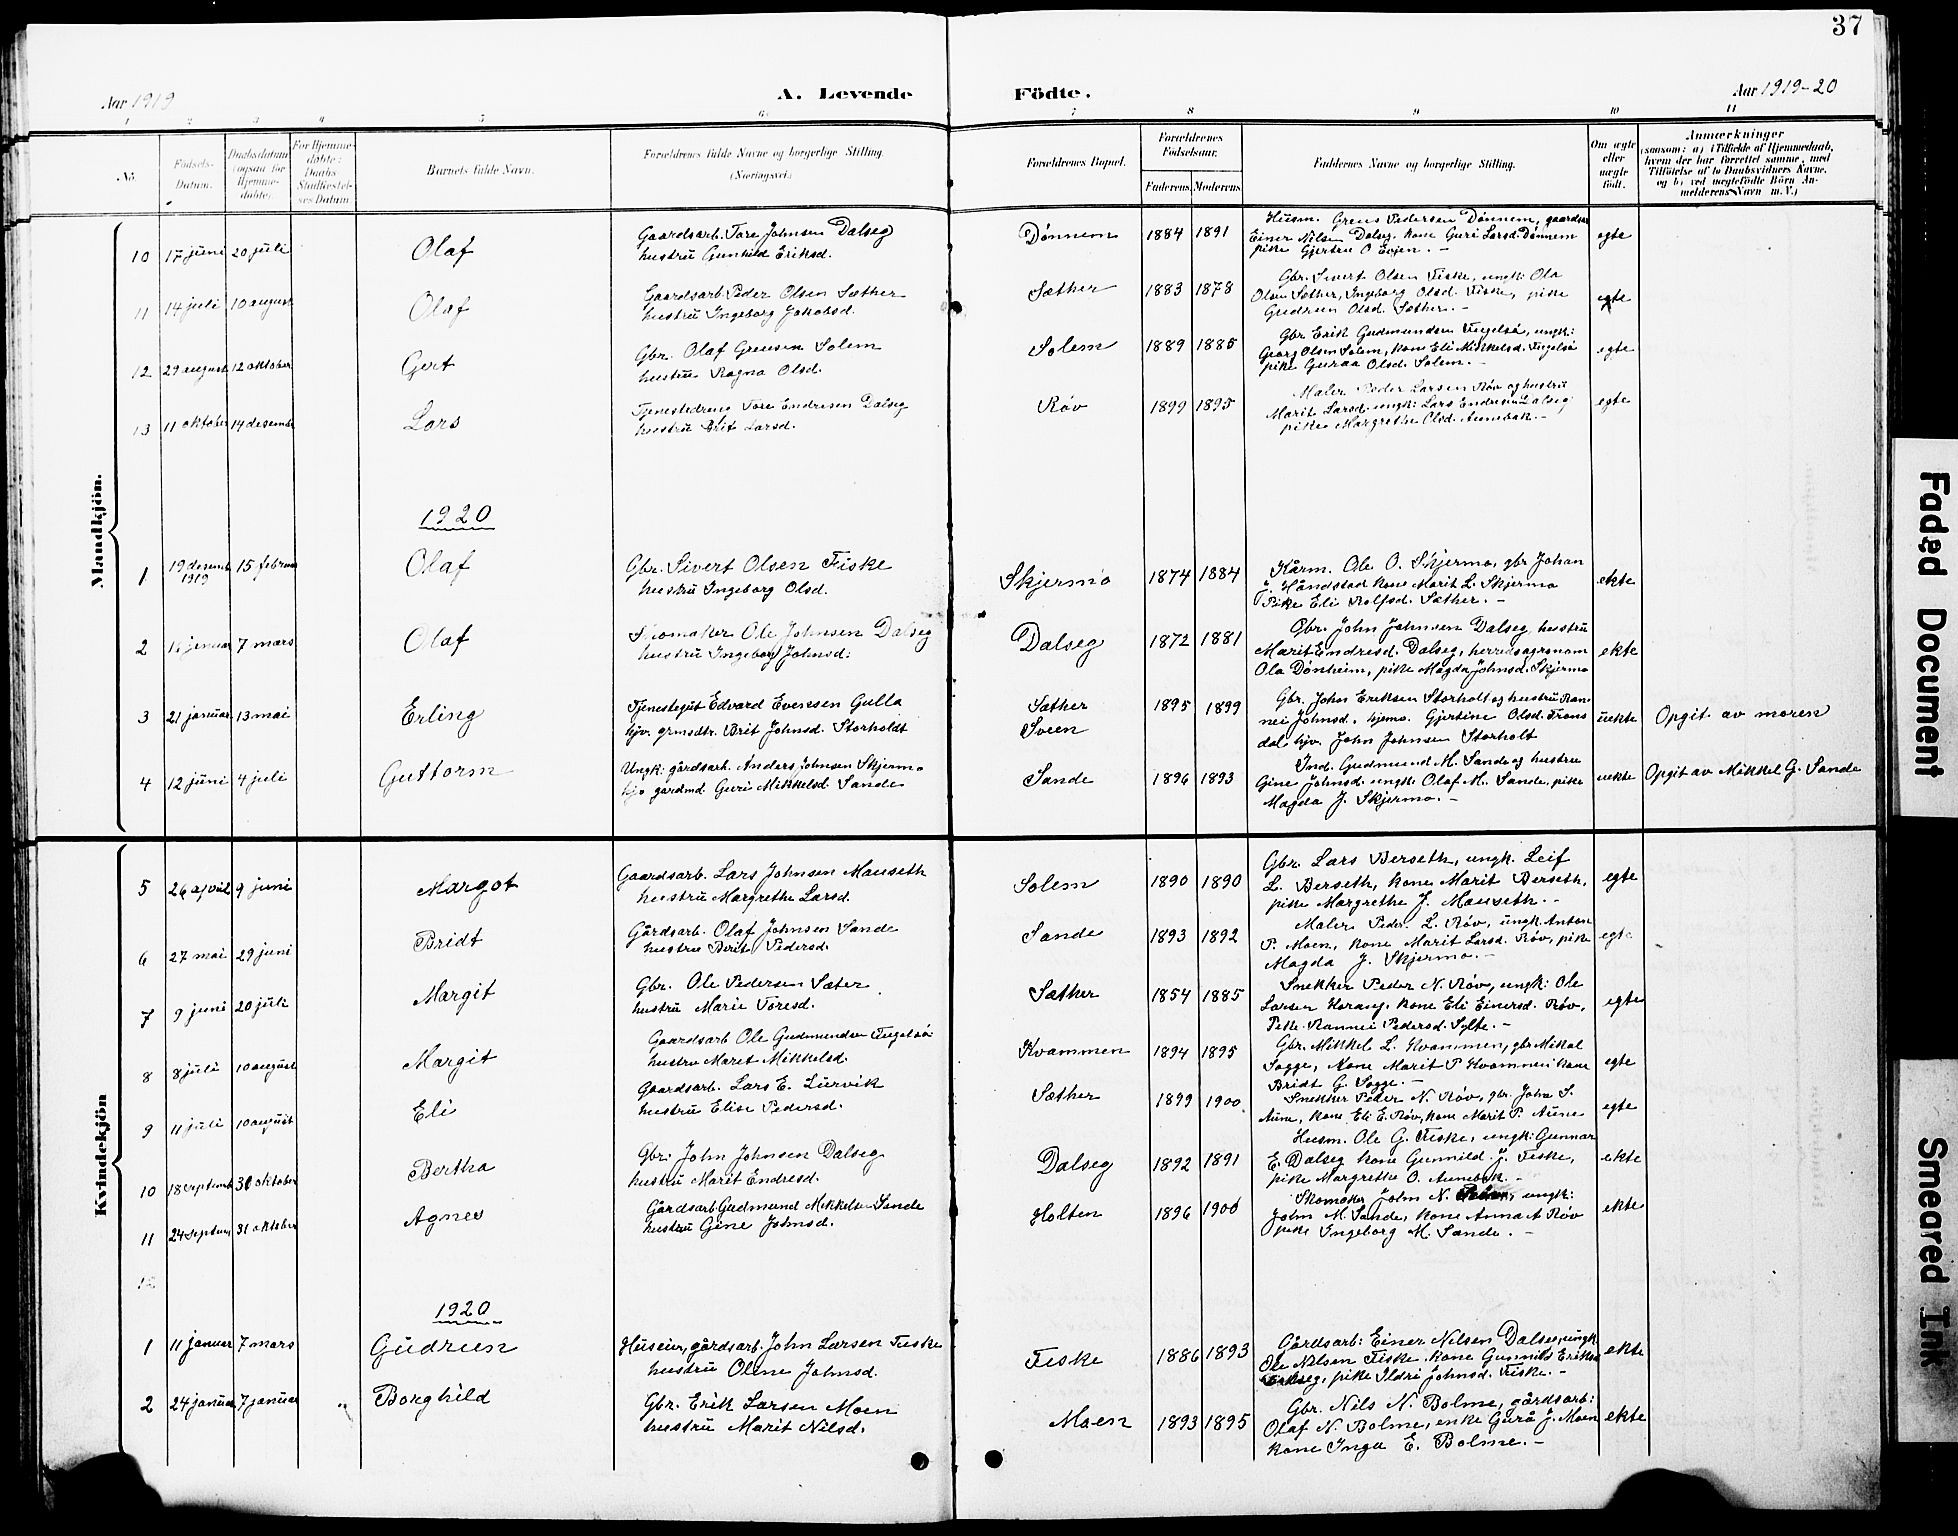 37
Aar 1919
A. Levende
Födte.
Aar 1919-20
1 2 3 4 5 6 7 8 9 10 11
No.
Födsels-
Datum.
Daabsdatum
(ogsaa for
Hjemme-
döbte).
For Hjemme-
döbte:
Daabs-
Stadfæstel-
ses Datum
Barnets fulde Navn.
Forældrenes fulde Navne og borgerlige Stilling.
(Næringsvei)
Forældrenes Bopæl.
Forældrenes
Födselsaar.
Faderens. Moderens.
Faddernes Navne og borgerlige Stilling.
Om ægte
eller
uægte
født.
Anmærkninger
(saasom: a) i Tilfælde af Hjemmedaab,
hvem der har forrettet samme, med
Tilföielse af to Daabsvidners Navne,
og b) ved uægtefödte Börn An-
melderens Navn m. V.)
Mandkjön.
10 17 juni 20 juli Olaf
Gaardsarb. Tore Johnsen Dalseg
hustru Gunhild Eriksd.
Dønnem 1884 1891
Husm. Grens Pedersen Dønnem, gaardsar
Einer Nilsen Dalseg, kone Guri Larsd. Dønnem
pike Gjertru O Evjen. -
egte
11 14 juli 10 august Olaf
Gaardsarb. Peder Olsen Sæther
hustru Ingeborg Jakobsd.
Sæther 1883 1878
Gbr. Sivert Olsen Fiske, ungk: Ola
Olsen Sæther, Ingeborg Olsd. Fiske, pike
Gudrun Olsd. Sæther. -
egte
12 29 august 12 oktober Gert
Gbr. Olaf Grensen Solem
hustru Ragna Olsd.
Solem 1889 1885
Gbr Erik Gudmundsen Fugelsö, ungk:
Georg Olsen Solem, kone Eli Mikkelsd. Fugelsö
pike Guraa Olsd. Solem. -
egte
13 11 oktober 14 desember Lars
Tjenestedreng Tore Endresen Dalseg
hustru Brit Larsd.
Røv 1899 1895
Maler Peder Larsen Röv og hustru
Marit Larsd. ungk: Lars Endresen Dalseg
pike Margrethe Olsd. Aunebak. -
egte
1920
1 19 desemb. 1919 15 februar Olaf
Gbr. Sivert Olsen Fiske
hustru Ingeborg Olsd.
Skjermo 1874 1884
Kårm. Ole O. Skjermo, gbr Johan
Håndstad kone Marit L. Skjermo
Pike Eli Rolfsd. Sæther. -
ekte
2 januar 7 mars Olaf
Skomaker Ole Johnsen Dalseg
hustru Ingeborg Johnsd:
Dalseg 1872 1881
Gbr. John Johnsen Dalseg, hustru
Marit Endresd. Dalseg, herredsagronom
Ola Dønheim, pike Magda Johnsd. Skjermo
ekte
3 21 januar 13 mai Erling
Tjenestegut Edvard Evensen Gulla
hjv. grmsdtr. Brit Johnsd. Storholdt
Sæther
Sveen
1895 1899
Gbr. John Eriksen Storholt og hustru Ran-
nei Johnsd., hjemv. Gjertine Olsd. Trons
dal hjv. John Johnsen Storholt
uekte Opgit. av moren
4 12 juni 4 juli Guttorm
Ungk: gårdsarb. Anders Johnsen Skjermo
hjv gardmd. Guri Mikkelsd. Sande
Sande 1896 1893
Ind. Gudmund M. Sande og hustru
Gine Johnsd. ungk: Olaf M. Sande, pike
Magda J. Skjermo. -
uekte Opgit av Mikkel G. Sande
Kvindekjön
5 26 april 9 juni Margot
Gaardsarb. Lars Johnsen Mauseth
hustru Margrethe Larsd.
Solem 1890 1890
Gbr. Lars Berseth, ungk. Leif
L. Berseth, kone Marit Berseth,
pike Margrethe J. Mauseth. -
egte
6 27 mai 29 juni Bridt
Gårdsarb. Olaf Johnsen Sande
hustru Berit Pedersd.
Sande 1893 1892
Maler Peder L. Röv, ungk. Anton
P. Moen, kone Marit Larsd. Röv, pike
Magda J. Skjermo. -
egte
7 9 juni 20 juli Margit
Gbr. Ole Pedersen Sæter
hustru Marie Toresd.
Sæther 1854 1885
Snekker Peder N. Röv, ungk: Ole
Larsen Horang, kone Eli Einersd. Röv,
Pike Rannei Pedersd. Sylte. -
egte
8 8 juli 10 august Margit
Gaardsarb Ole Gudmundsen Fugelsö
hustru Maret Mikkelsd.
Kvammen 1894 1895
Gbr. Mikkel L. Kvammen, gbr Mikal
Sogge, Kone Marit P Kvammen kone
Bridt G. Sogge. -
egte
9 11 juli 10 august Eli
Gaardsarb. Lars E. Lurvik
hustru Elise Pedersd.
Sæther 1899 1900
Snekker Peder N. Röv, gbr. John S.
Aune, kone Eli E. Röv, kone Marit P. Aune
egte
10 18 septemb. 31 oktober Bertha
Gbr. John Johnsen Dalseg
hustru Marit Endresd.
Dalseg 1892 1891
Husm. Ole G. Fiske, ungk: Gunnar
E. Dalseg kone Gunnild J. Fiske,
pike Margrethe O. Aunebak. -
ekte
11 24 septem. 31 oktober Agnes
Gårdsarb. Gudmund Mikkelsen Sande
hustru Gine Johnsd.
Holten 1896 1900
Skomaker John N. ungk:
John M. Sande, kone Anna A Röv
pike Ingeborg M. Sande. -
ekte
12
1920
1 11 januar 7 mars Gudrun
Huseier, gårdsarb. John Larsen Fiske
hustru Oline Johnsd.
Fiske 1886 1893
Gårdsarb: Einer Nilsen Dalseg, ungk
Ole Nilsen Fiske, kone Gunnild Eriksd
Dalseg, pike Ildri Johnsd. Fiske. -
ekte
2 24 januar 7 januar Borghild
Gbr. Erik Larsen Moen
hustru Marit Nilsd.
Moen 1893 1895
Gbr. Nils N. Bolme, gårdsarb:
Olaf N. Bolme, enke Gurå J. Moen
kone Inga E. Bolme. -
ekte
Faded Document
Smeared Ink